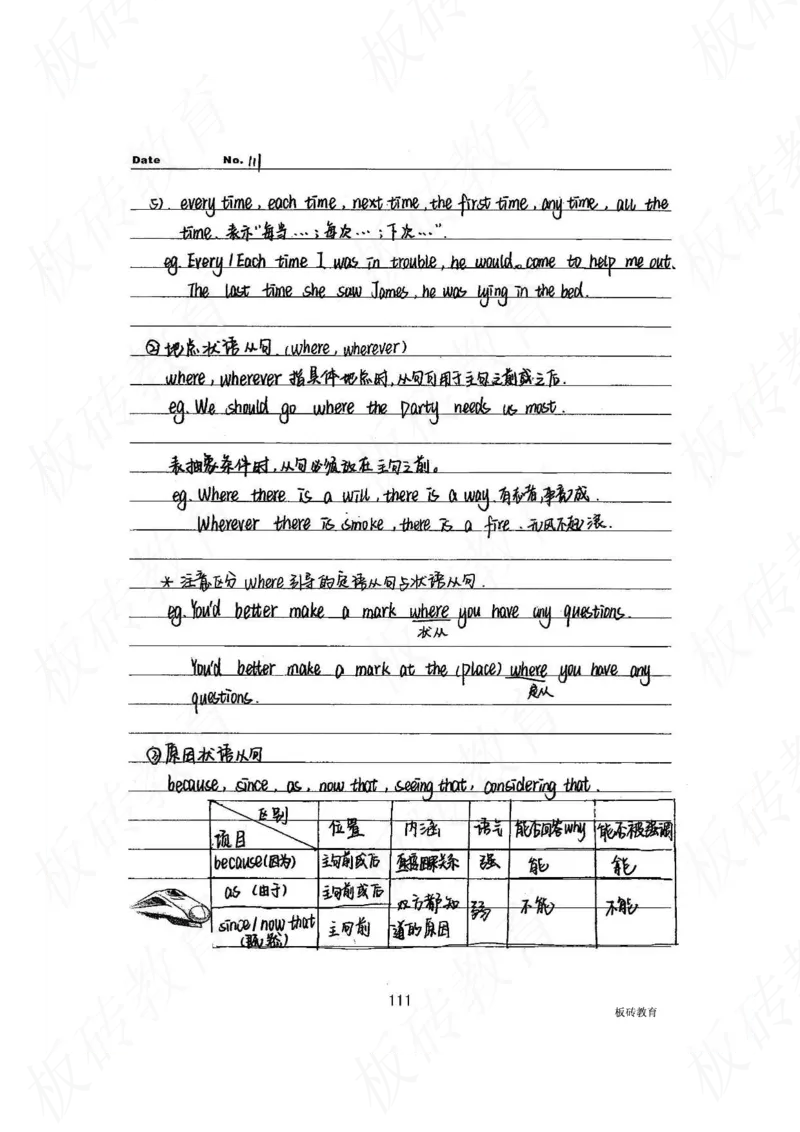 Date No. 111
5). every time, each time, next time, the first time, any time, all the
time. 表示“每当…;每次…;下次…”.
eg. Every / Each time I was in trouble, he would come to help me out.
The last time she saw James, he was lying in the bed.
②地点状语从句. (where, wherever)
where, wherever 指具体地点时,从句可用于主句之前或之后.
eg. We should go where the Party needs us most.
表抽象条件时,从句必须放在主句之前。
eg. Where there is a will, there is a way. 有志者,事竟成.
Wherever there is smoke, there is a fire. 无风不起浪.
* 注意区分 where 引导的定语从句与状语从句.
eg. You'd better make a mark where you have any questions.
状从
You'd better make a mark at the (place) where you have any
定从
questions.
③原因状语从句
because, since, as, now that, seeing that, considering that.
区别 项目 位置 内涵 语气 能否回答why 能否被强调
because(因为) 主句前或后 直接因果关系 强 能 能
as (由于) 主句前或后 双方都知道的原因 弱 不能 不能
since / now that (既然) 主句前
111
板砖教育